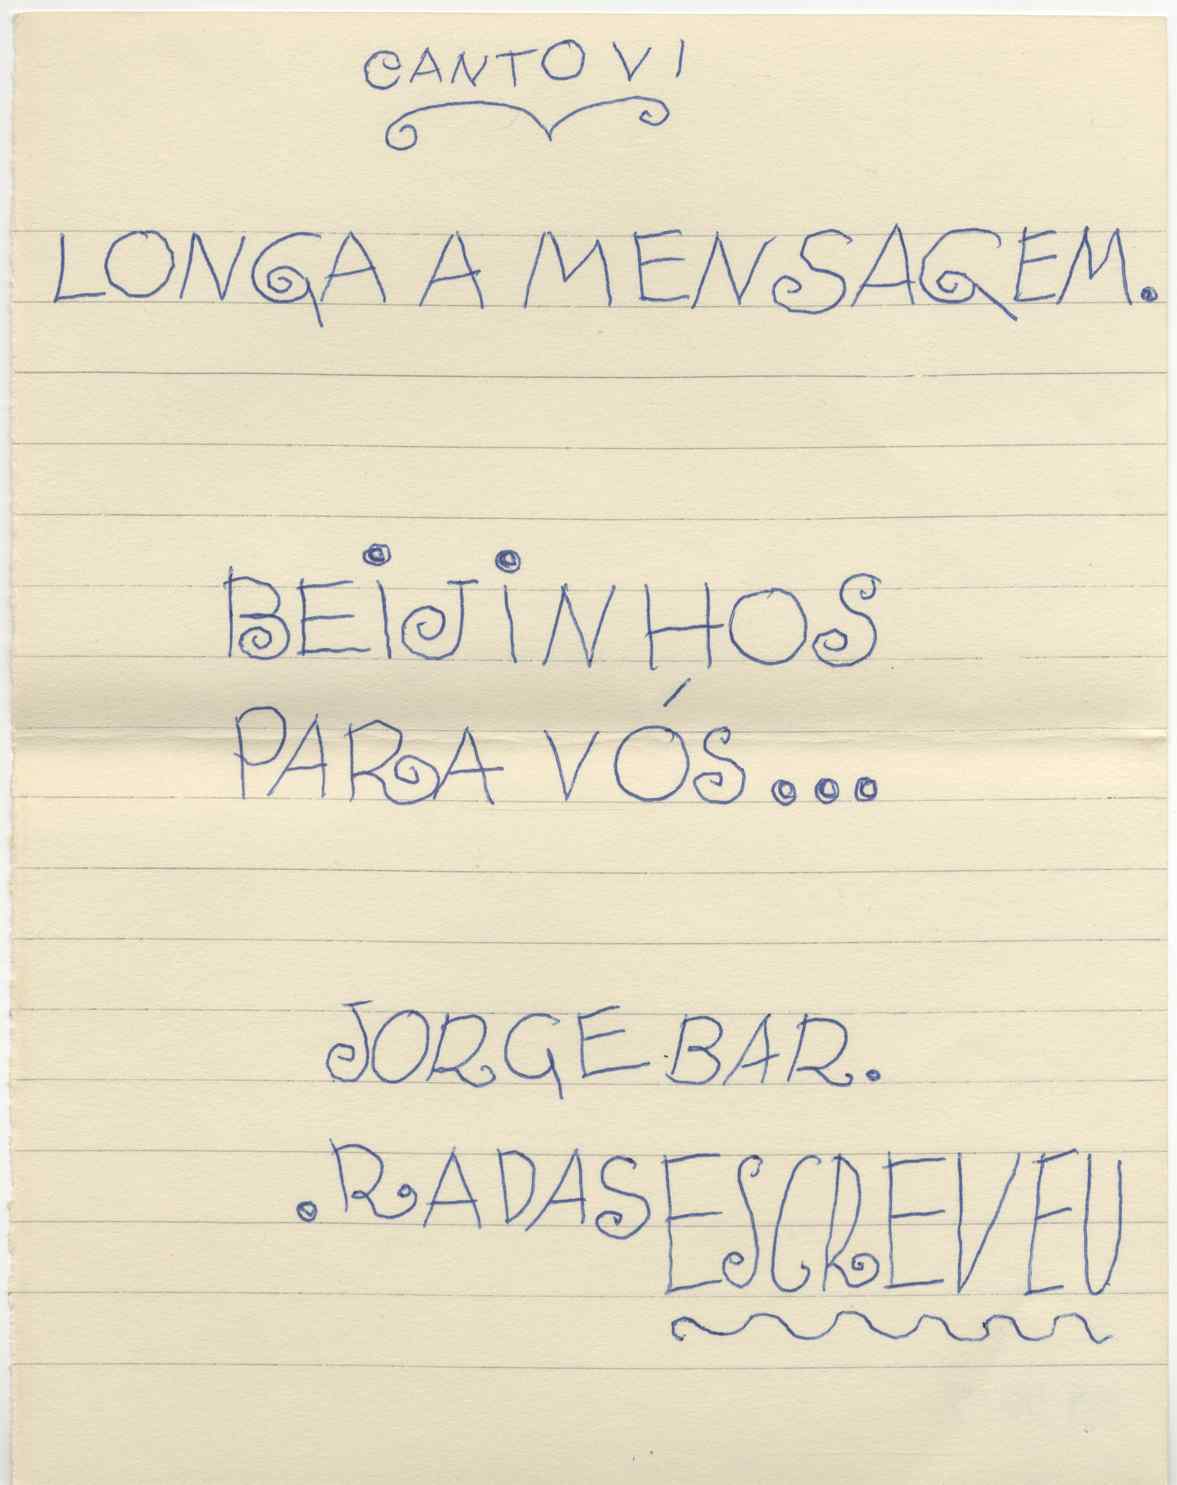 CANTO VI
LONGA A MENSAGEM.
BEIJINHOS
PARA VÓS...
JORGE BAR.
.RADAS ESCREVEU